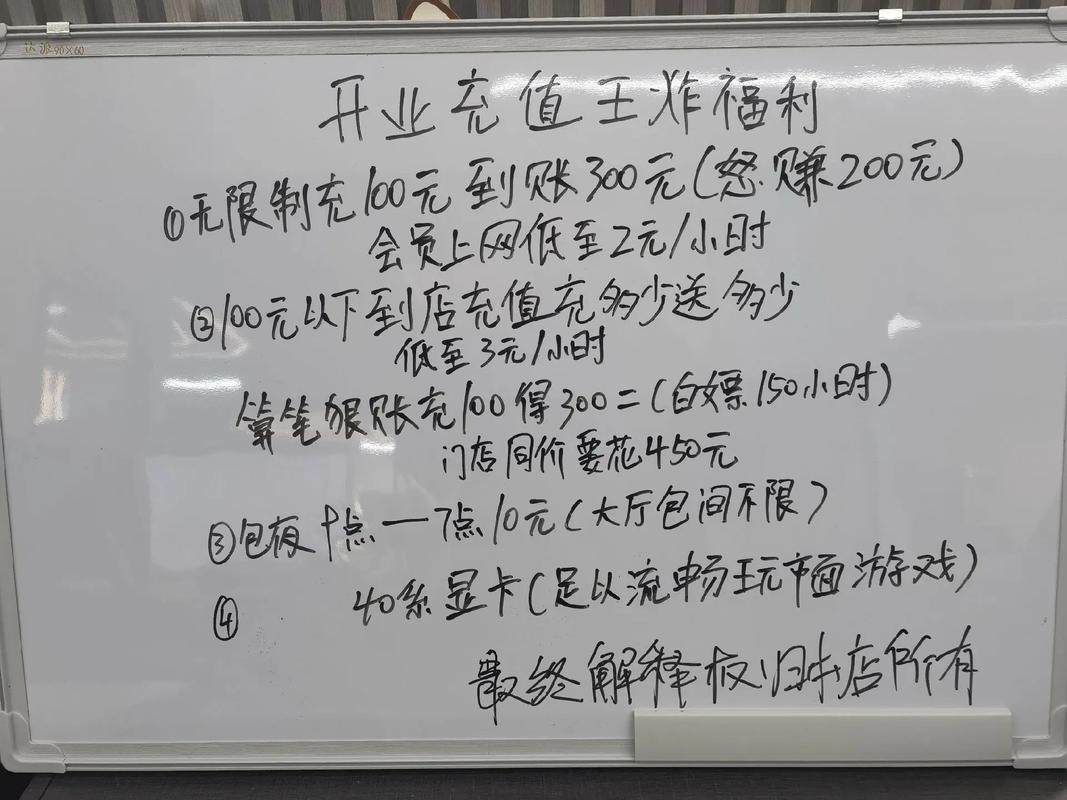 达派90×60
开业充值王炸福利
①无限制充100元到账300元(怒赚200元)
会员上网低至2元/小时
②100元以下到店充值充多少送多少
低至3元/小时
算笔狠账充100得300=(白嫖150小时)
门店同价要花450元
③包夜十点—7点10元(大厅包间不限)
④ 40系显卡(足以流畅玩市面游戏)
最终解释权归本店所有